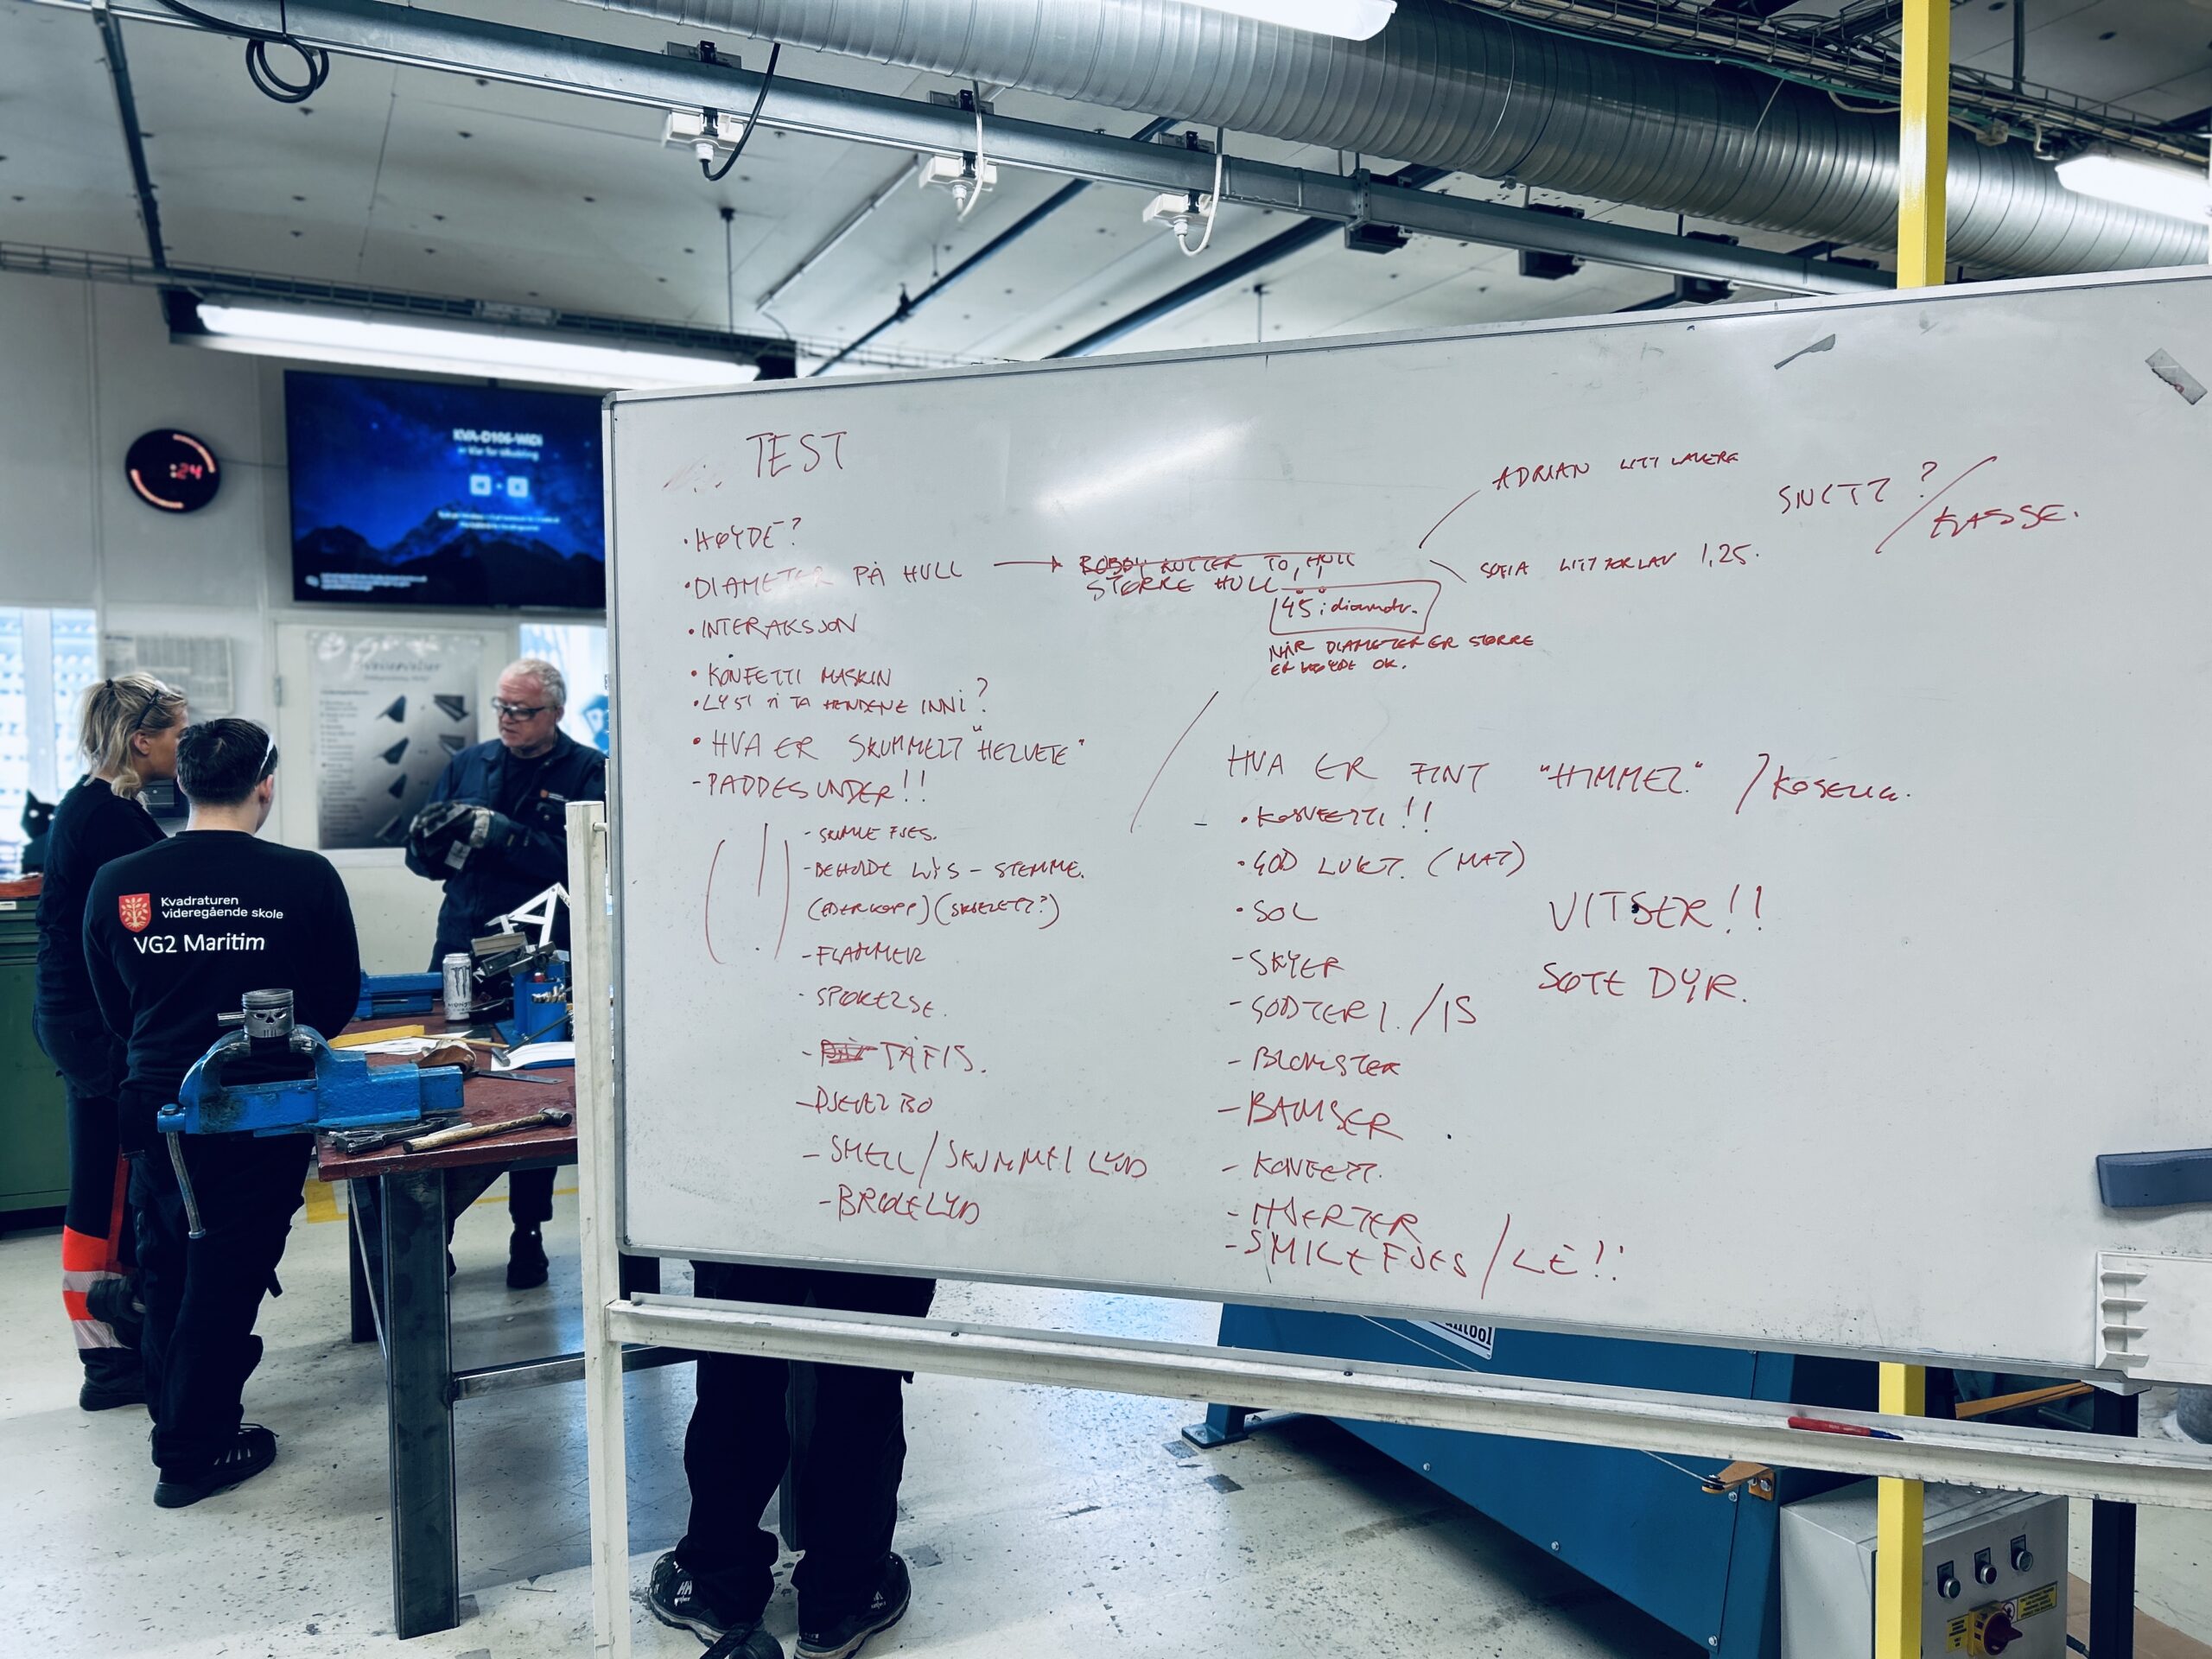 TEST
• HØYDE?
• DIAMETER PÅ HULL
STØRRE HULL
45 i
NÅR DIAMETER ER STØRRE
ER HØYDE OK.
ADRIAN LITT LAVERE
SOFIA LITT FOR LAV 1,25.
KASSE.
• INTERAKSJON
• KONFETTI MASKIN
• LYST Å TA HENDENE INNI?
• HVA ER SKUMMELT "HELVETE"
- PADDES UNDER!!
FJES.
LYS - STEMME.
(EDERKOPP) (SKJELETT?)
- FLAMMER
- SPØKELSE.
- TÅFIS.
- DJEVEL
- SMELL / SKUMMEL LYD
- BRØLELYD
HVA ER FINT "HIMMEL" / KOSELIG.
• KONFETTI!!
• GOD LUKT. (MAT)
• SOL
- SKYER
- GODTERI. / IS
- BLOMSTER
- BAMSER
- KONFETTI.
- HJERTER
- SMILEFJES / LE!!
VITSER!!
SØTE DYR.
KVA-D106-WiDi
:24
Kvadraturen
videregående skole
VG2 Maritim